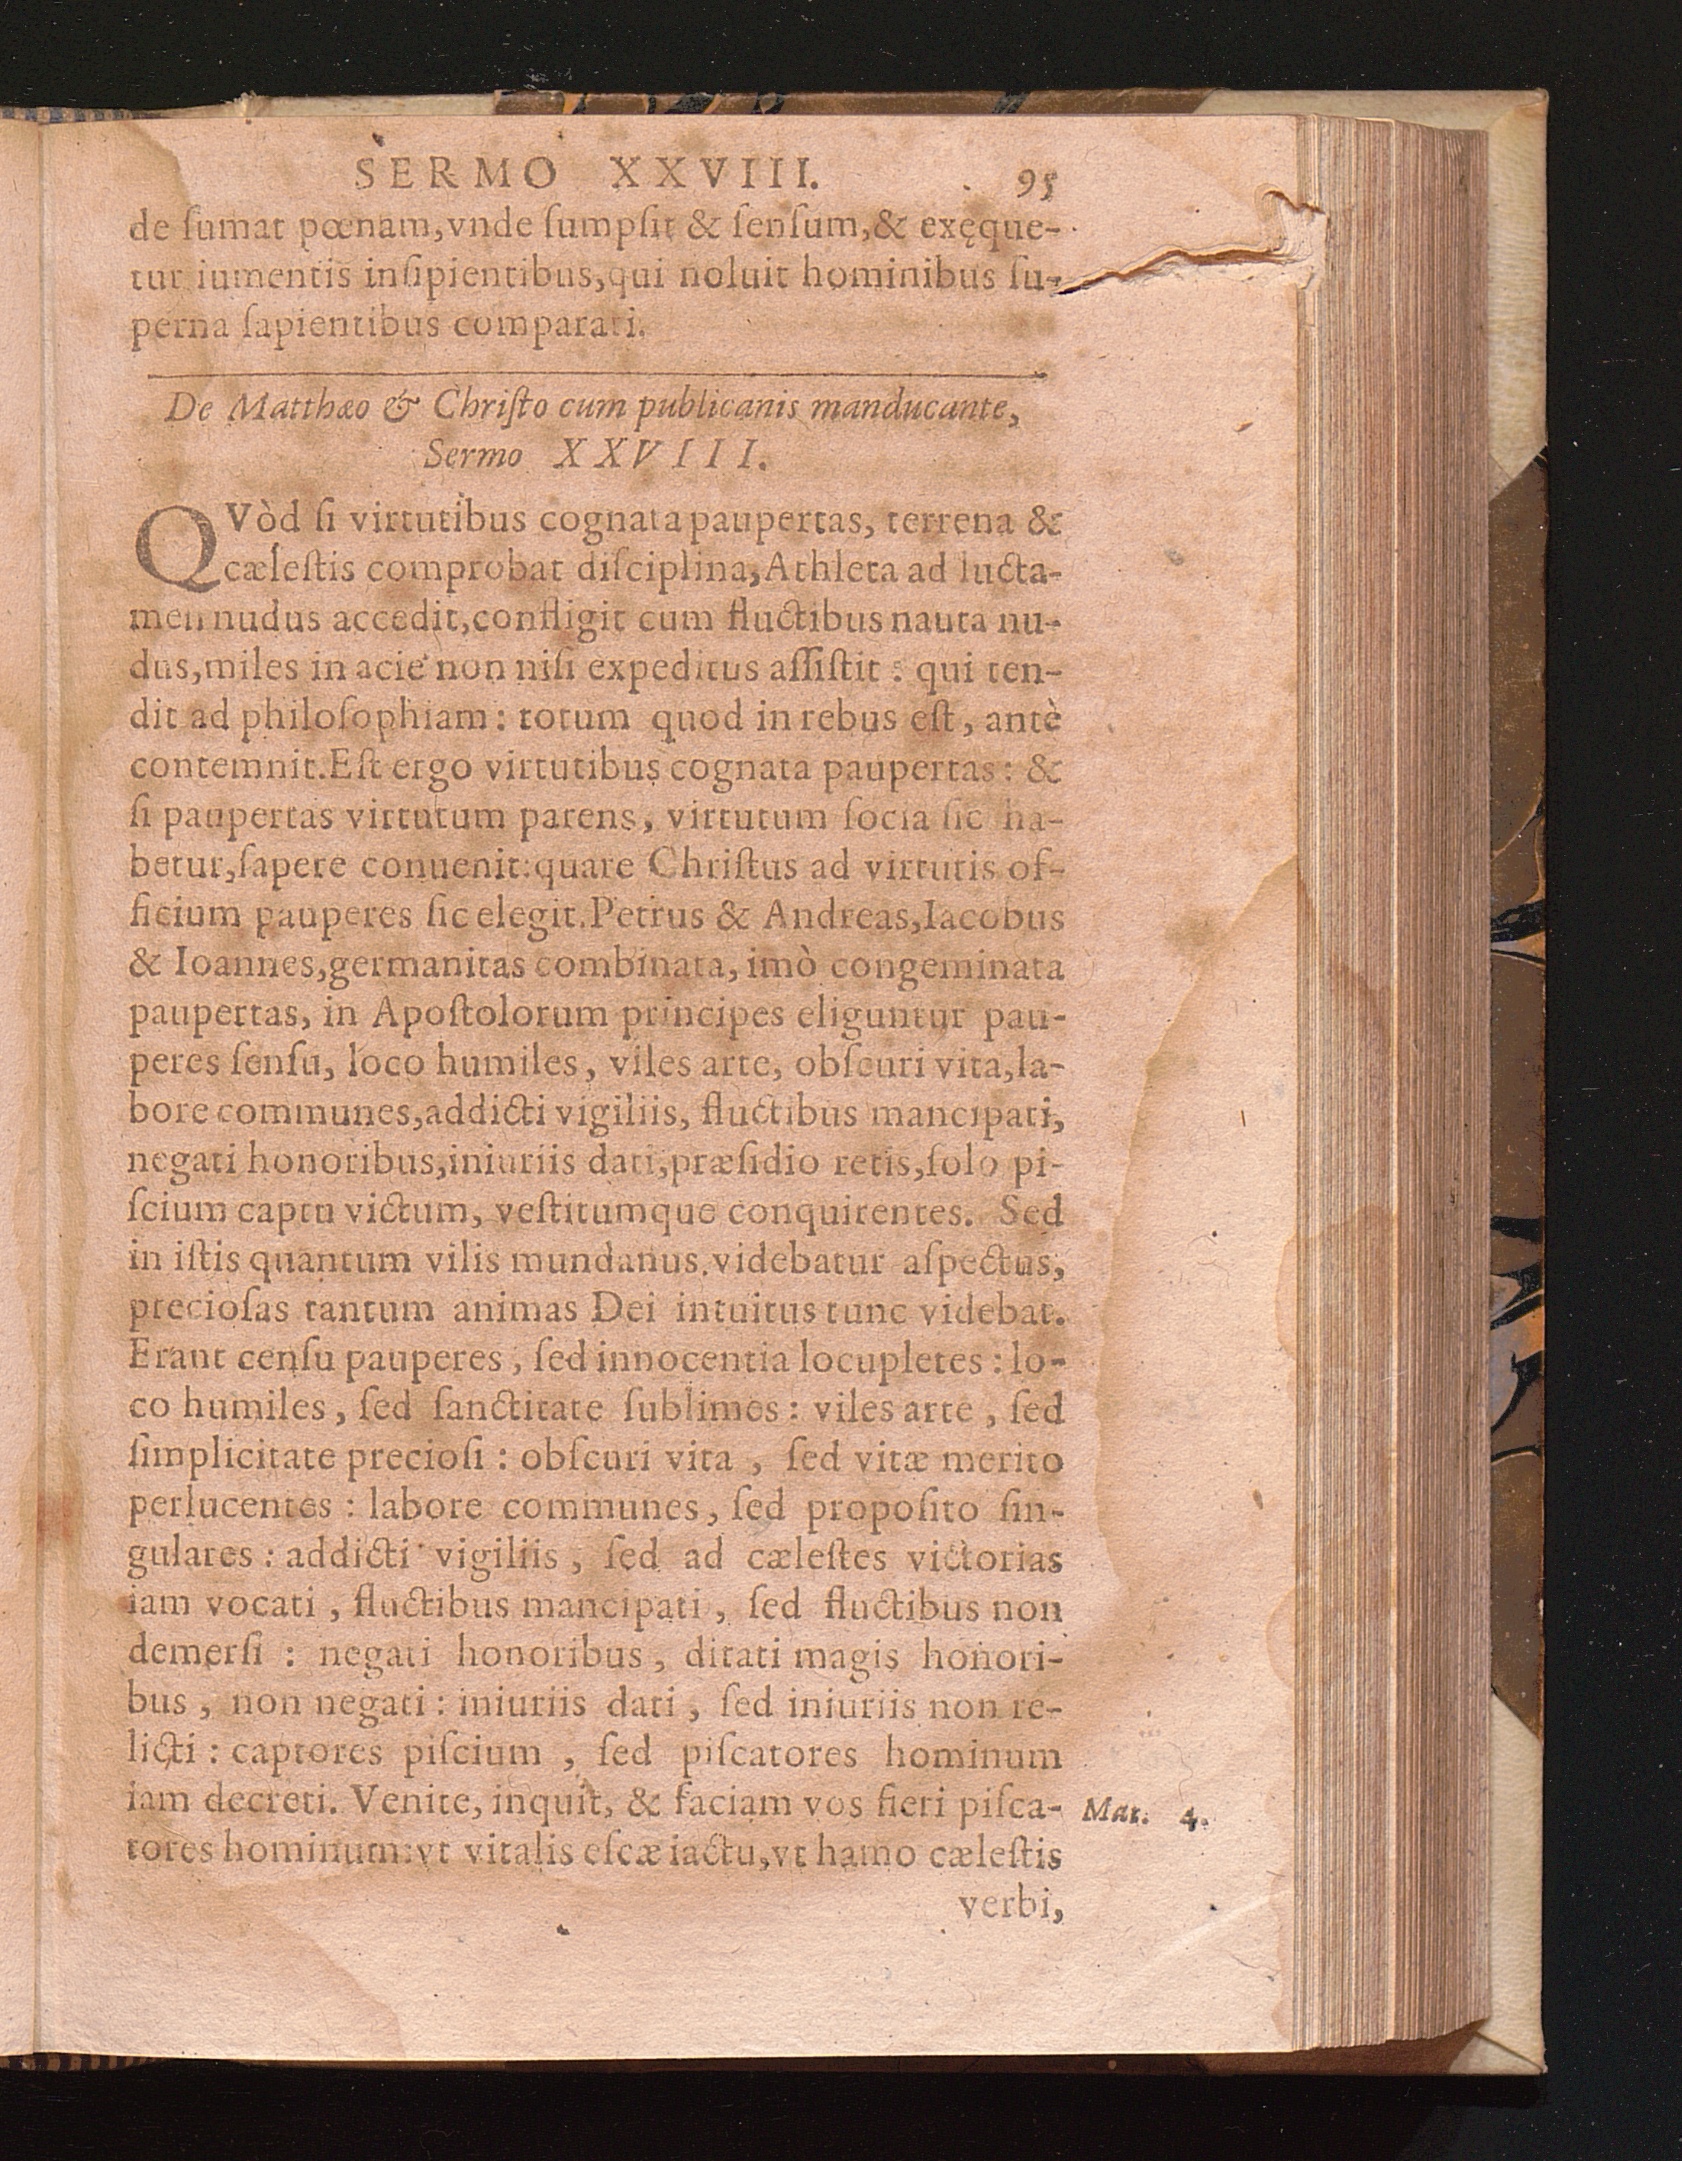 SERMO XXVIII. 95
de ſumat pœnam,vnde ſumpſit & ſenſum,& exęque-
tur iumentis inſipientibus,qui noluit hominibus ſu-
perna ſapientibus comparari.
De Matthæo & Chriſto cum publicanis manducante,
Sermo XXVIII.
QVòd ſi virtutibus cognata paupertas, terrena &
cæleſtis comprobat diſciplina,Athleta ad lucta-
men nudus accedit,confligit cum fluctibus nauta nu-
dus,miles in acie non niſi expeditus aſſiſtit : qui ten-
dit ad philoſophiam : totum quod in rebus eſt, antè
contemnit.Eſt ergo virtutibus cognata paupertas : &
ſi paupertas virtutum parens, virtutum ſocia ſic ha-
betur,ſapere conuenit:quare Chriſtus ad virtutis of-
ficium pauperes ſic elegit.Petrus & Andreas,Iacobus
& Ioannes,germanitas combinata, imò congeminata
paupertas, in Apoſtolorum principes eliguntur pau-
peres ſenſu, loco humiles, viles arte, obſcuri vita,la-
bore communes,addicti vigiliis, fluctibus mancipati,
negati honoribus,iniuriis dati,præſidio retis,ſolo pi-
ſcium captu victum, veſtitumque conquirentes. Sed
in iſtis quantum vilis mundanus videbatur aſpectus,
precioſas tantum animas Dei intuitus tunc videbat.
Erant cenſu pauperes, ſed innocentia locupletes : lo-
co humiles, ſed ſanctitate ſublimes : viles arte, ſed
ſimplicitate precioſi : obſcuri vita, ſed vitæ merito
perlucentes : labore communes, ſed propoſito ſin-
gulares : addicti vigiliis, ſed ad cæleſtes victorias
iam vocati, fluctibus mancipati, ſed fluctibus non
demerſi : negati honoribus, ditati magis honori-
bus, non negati : iniuriis dati, ſed iniuriis non re-
licti : captores piſcium, ſed piſcatores hominum
iam decreti. Venite, inquit, & faciam vos fieri piſca- Mat. 4.
tores hominum:vt vitalis eſcæ iactu,vt hamo cæleſtis
verbi,